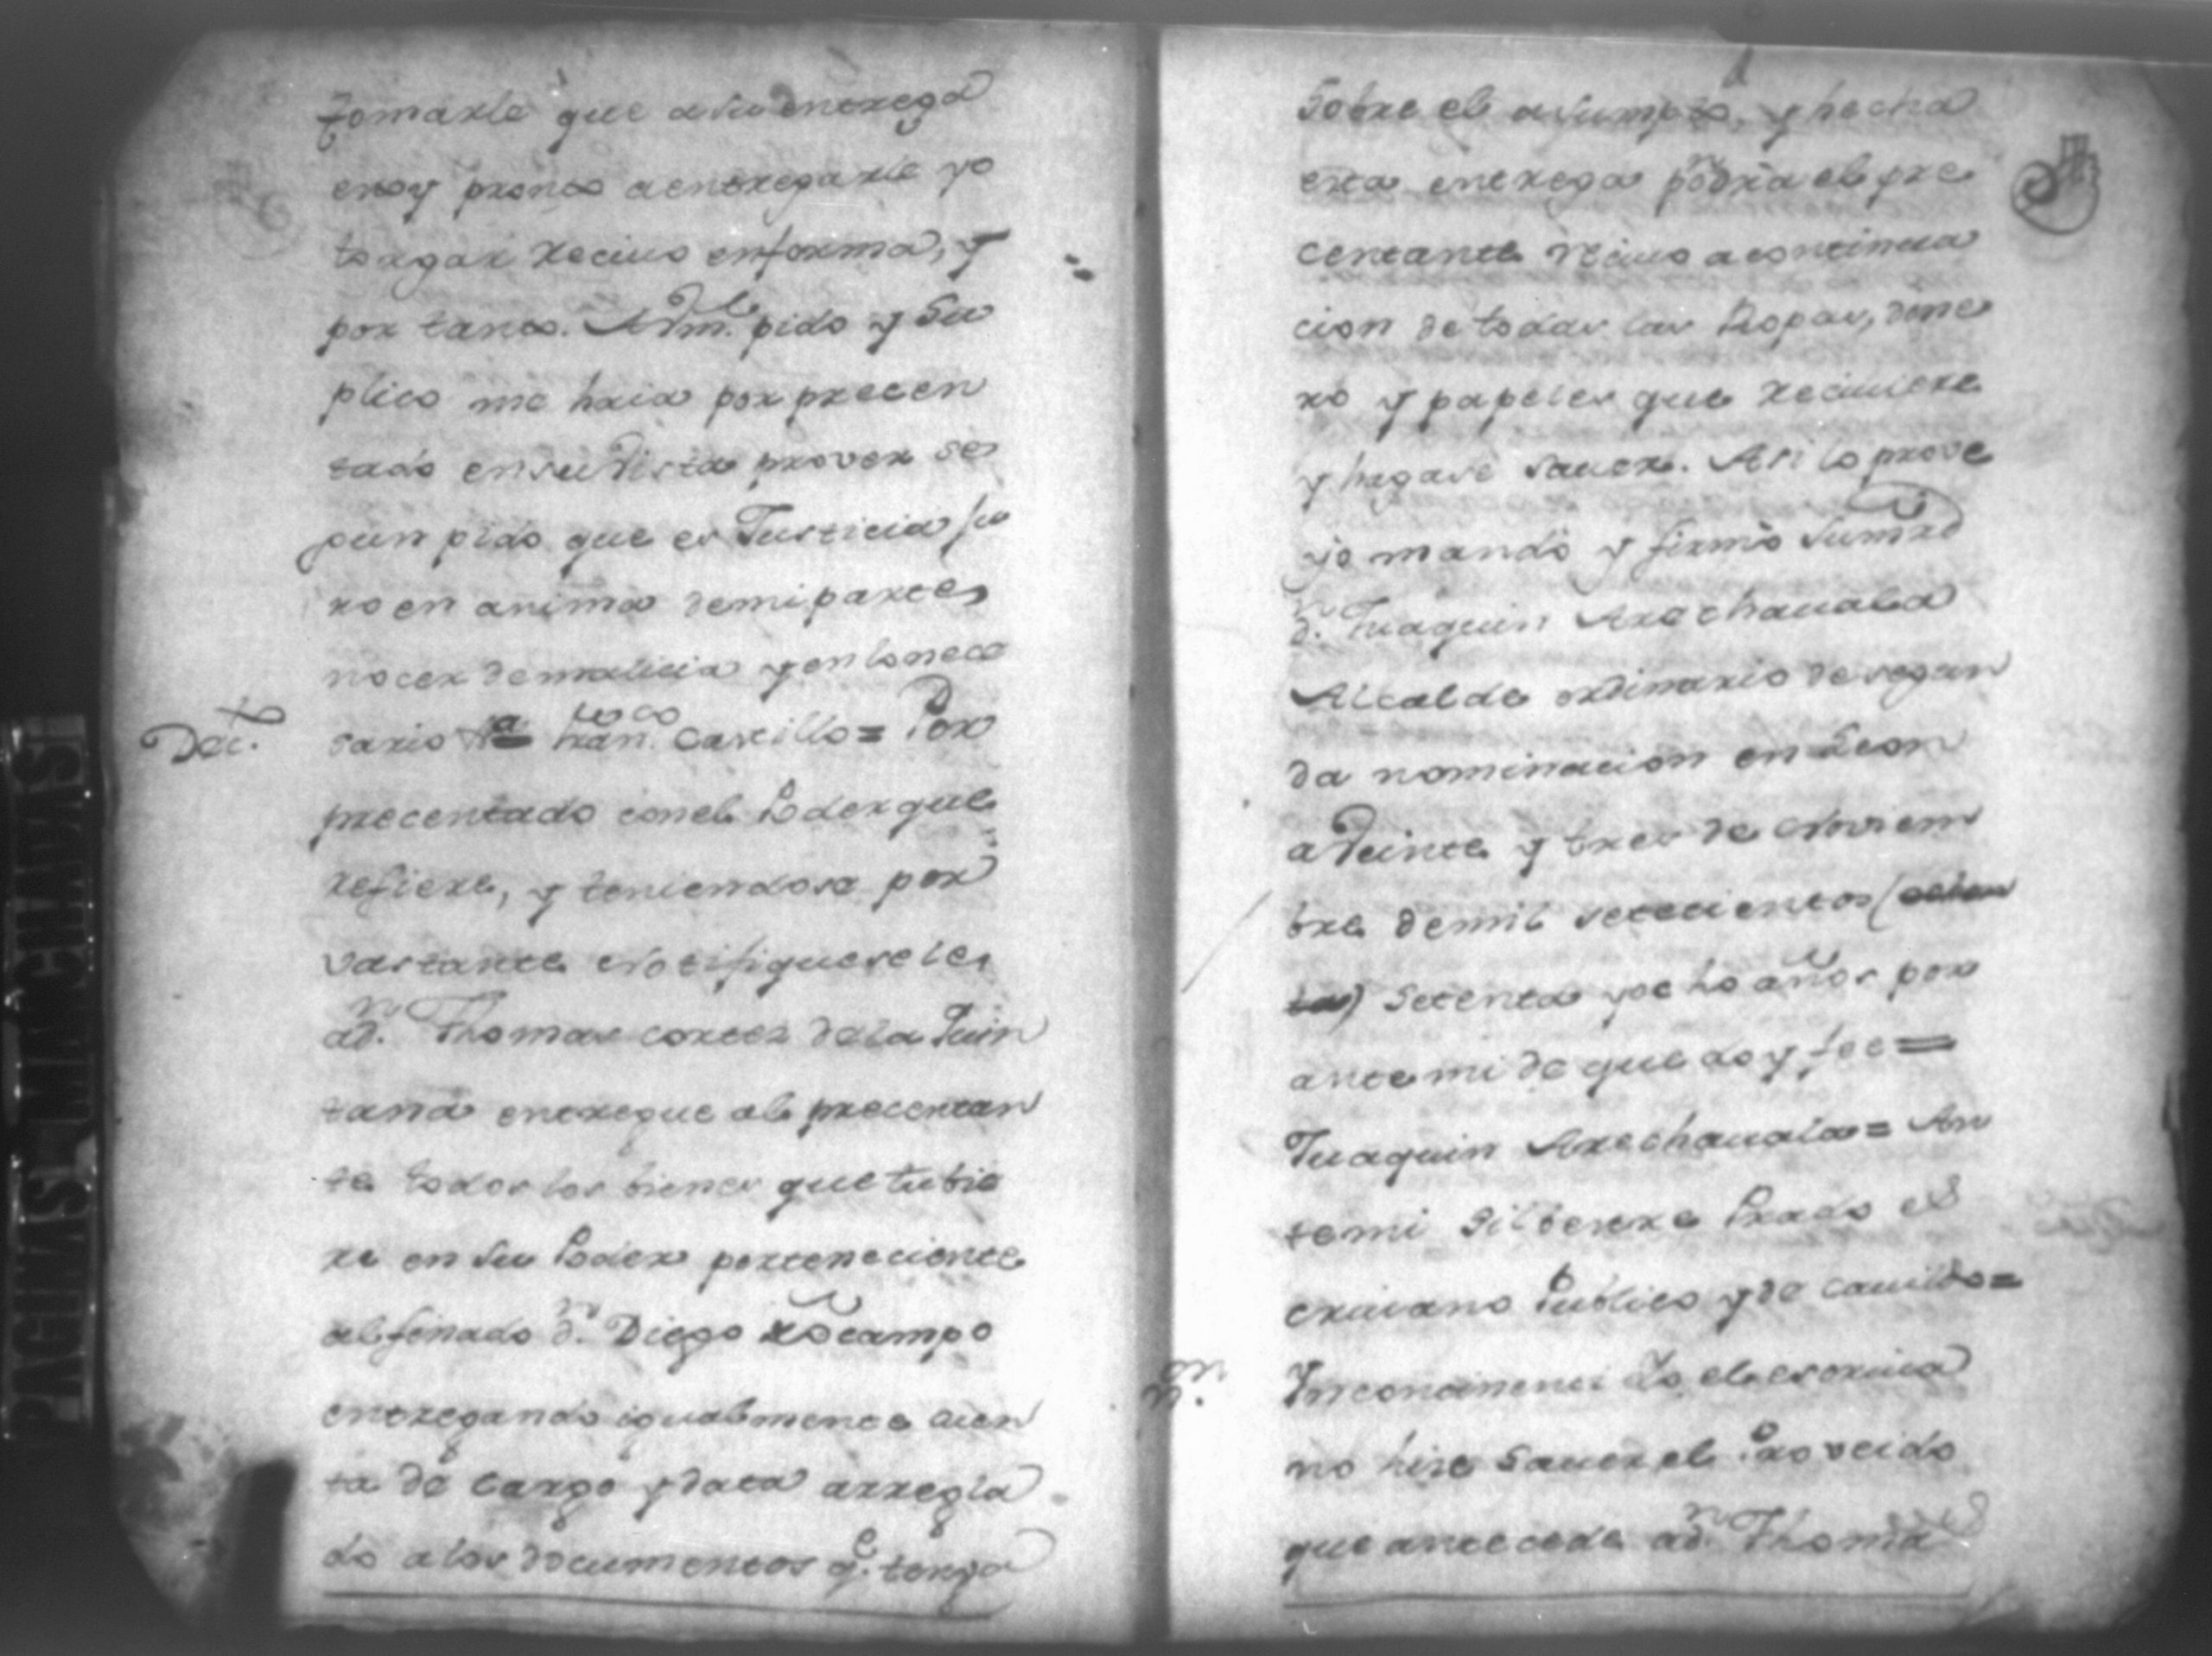 tomarle que a su entrega
estoy pronto a entregarle yo
torgar reciuo enforma, y
por tanto. A Vm.d pido y Su
plico me haia por precen
tado en su Vista prover se
gun pido que es Justicia Ju
ro en anima demiparte
nocer demalicia y en lo nece
Dec.to
sario Fran.co Castillo = Por
precentado conel Poder que
refiere, y teniendose por
vastante Notifiquesele
a d.n Thomas Cortes dela Quin
tana entregue al precentan
te todos los bienes que tubie
re en su Poder perteneciente
al finado d.n Diego Rocampo
entregando igualmente cuen
ta de cargo y data arregla
do a los documentos q.e tenga
Sobre el asumpto, y hecha
esta entrega pondra el pre
centante reciuo a continua
cion de todas las Ropas, dine
ro y papeles que reciuiere
y hagase sauer. Asi lo prove
yo mandó y firmó Sumrd
d.n Juaquin Arechauala
Alcalde ordinario de segun
da nominacion en Leon
a Veinte y tres de Noviem
bre demil setecientos (ochen
ta) Setenta y ocho años por
antemi de que doy fee =
Juaquin Arechauala = An
temi Silbestre Prado es
criuano Publico y de cauildo =
n.on
Yncontinenti Yo el escriua
no hise sauer el Proveido
que antecede a d.n Thomas